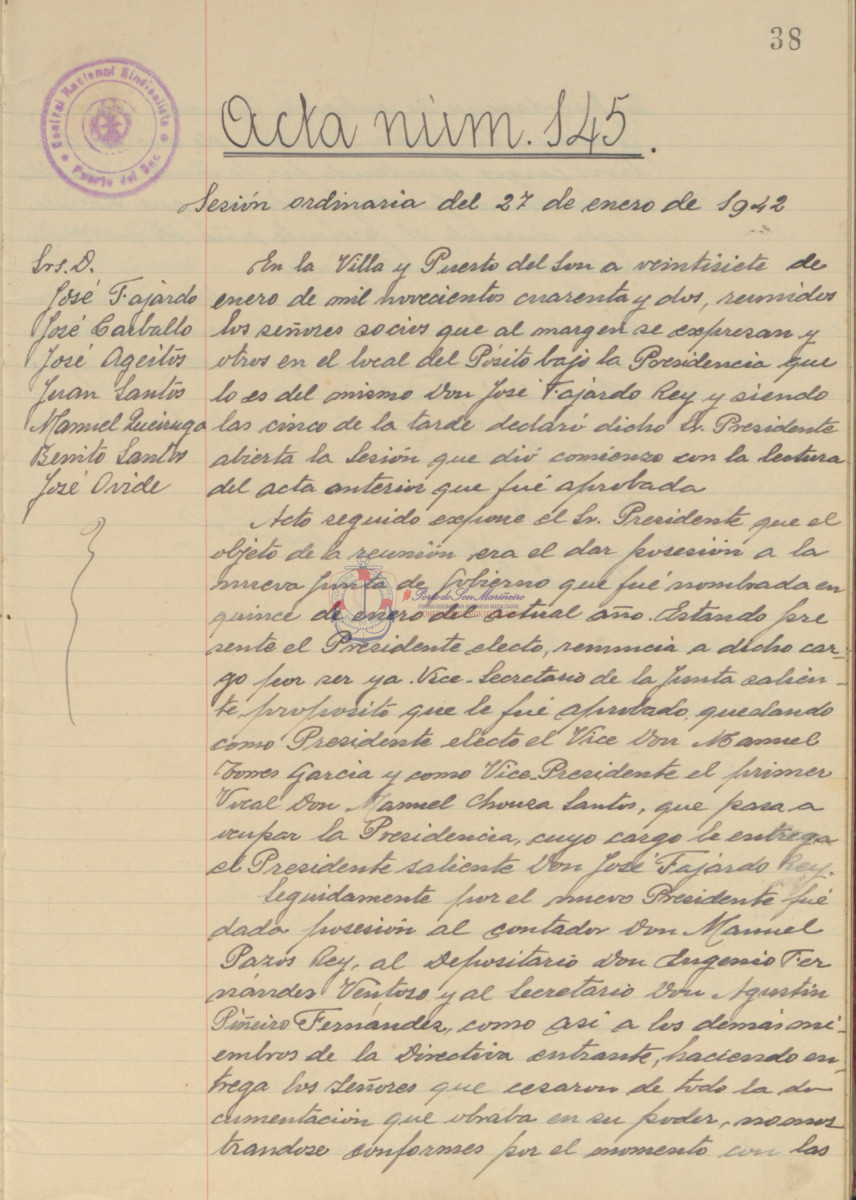 38
Central Nacional Sindicalista
Puerto del Son
Acta núm. 145.
Sesión ordinaria del 27 de enero de 1942
Srs. D.
José Fajárdo
José Carballo
José Ageitós
Juan Santos
Manuel Queiruga
Benito Santos
José Ovide
En la Villa y Puerto del Son a veintisiete de
enero de mil novecientos cuarenta y dos, reunidos
los señores socios que al margen se expresan y
otros en el local del Pósito bajo la Presidencia que
lo es del mismo Don José Fajárdo Rey y siendo
las cinco de la tarde declaró dicho Sr. Presidente
abierta la Sesión que dió comienzo con la lectura
del acta anterior que fué aprobada
Acto seguido expone el Sr. Presidente que el
objeto de la reunión era el dar posesión a la
nueva Junta de Gobierno que fué nombrada en
quince de enero del actual año. Estando pre
sente el Presidente electo, renuncia a dicho car-
go por ser ya Vice-Secretario de la Junta salien-
te, proposito que le fué aprobado, quedando
como Presidente electo el Vice Don Manuel
Torres García y como Vice-Presidente el primer
Vocal Don Manuel Chouza Santos, que pasa a
ocupar la Presidencia, cuyo cargo le entrega
el Presidente saliente Don José Fajárdo Rey.
Seguidamente por el nuevo Presidente fué
dada posesión al contador Don Manuel
Pazos Rey, al Depositario Don Eugenio Fer
nández Ventoso y al Secretario Don Agustin
Piñeiro Fernández, como asi a los demás mi-
embros de la Directiva entrante, haciendo en-
trega los Señores que cesaron de todo la do
cumentación que obraba en su poder, no mos
trandose conformes por el momento con las
#Porto do Son Mariñeiro